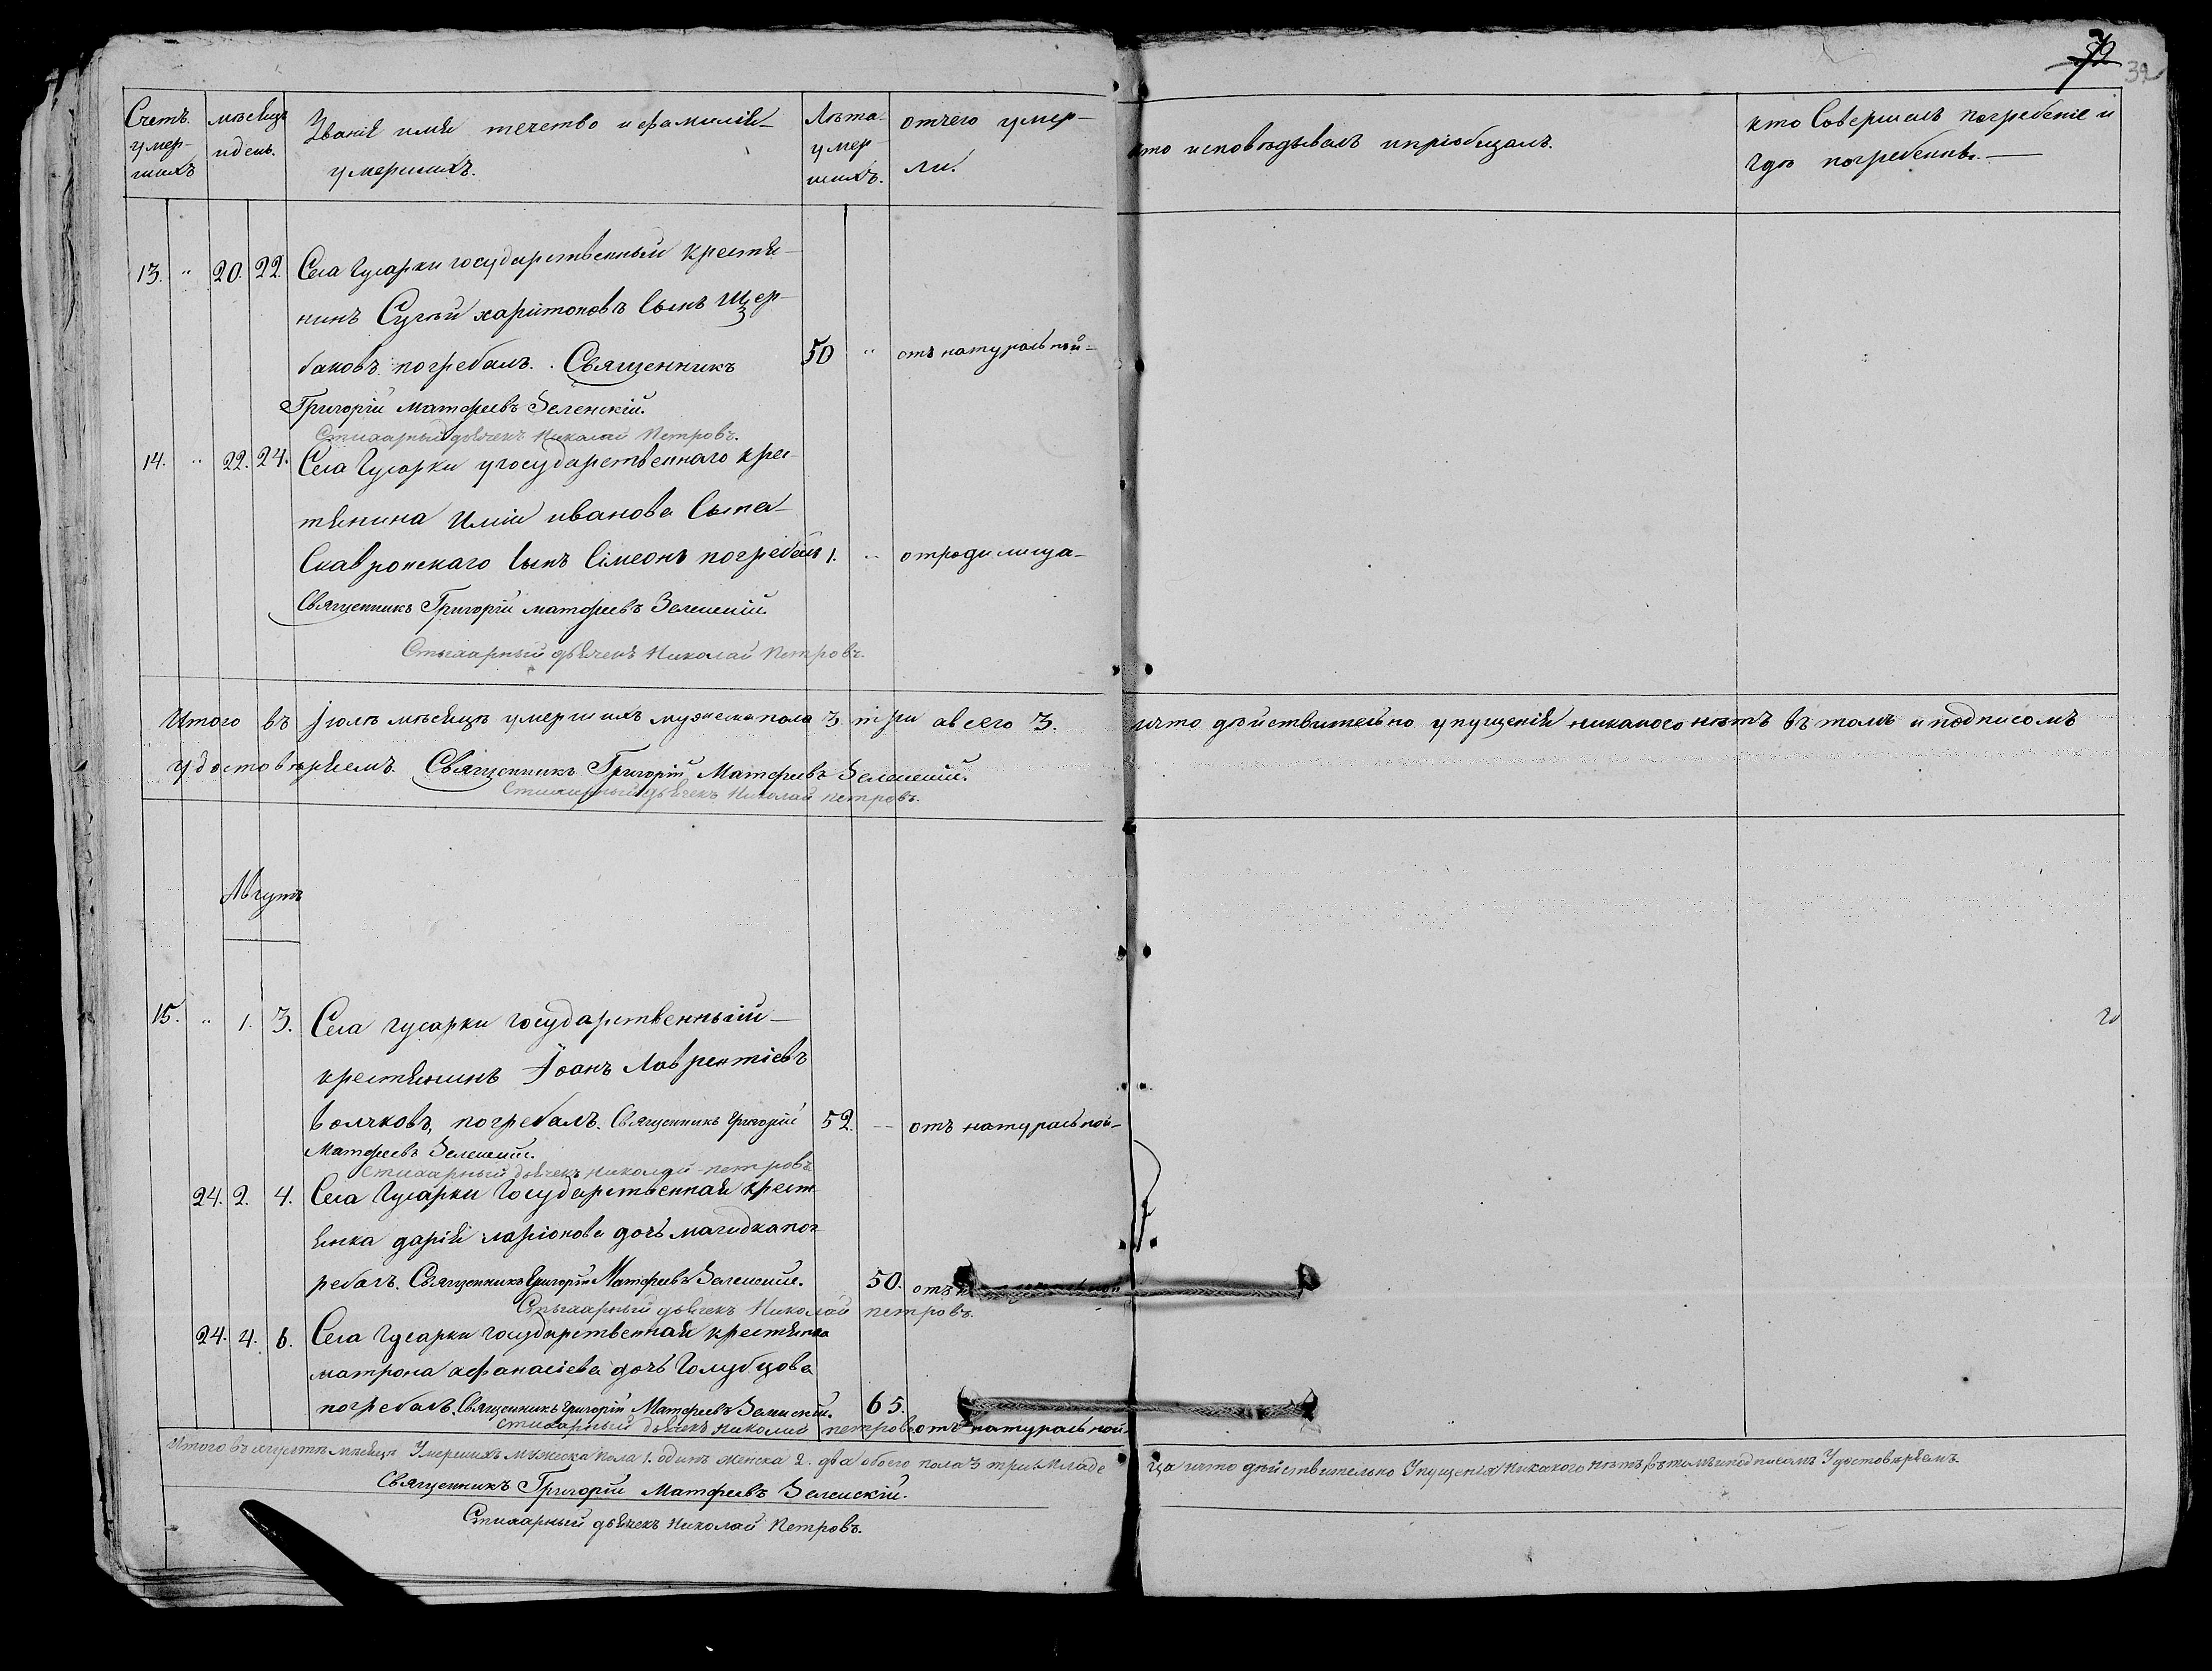 72
39
Счетъ умер- шихъ
мѣсяцъ и день.
Званія имя течество и фамилія умершихъ.
Лѣта умер- шихъ.
отчего умер- ли.
кто исповѣдывалъ и пріобщалъ.
кто Совершалъ погребеніе и гдѣ погребенны.
13. " 20. 22. Села Гусарки государственный крестя-
нинъ Сугѣй харитоновъ Сынъ Щер-
баковъ погребалъ. Священникъ 50 " отъ натуральной
Григорій Матфеевъ Зеленскій.
Стихарный дьячекъ Николай Петровъ.
14. " 22. 24. Села Гусарки у государственнаго крес-
тянина Иліи иванова Сына
Скавронскаго Сынъ Симеонъ погребалъ 1. " отродимица
Священникъ Григорій матфеевъ Зеленскій.
Стихарный дьячекъ Николай Петровъ.
Итого въ іюлѣ мѣсяцѣ умершихъ мужеска пола 3. три а всего 3. ичто дѣйствительно упущенія никакого нѣтъ въ томъ и подписомъ
удостовѣряемъ. Священникъ Григорій Матфеевъ Зеленскій.
Стихарный дьячекъ Николай петровъ.
Августъ
15. " 1. 3. Села гусарки государственный
крестянинъ Іоанъ Лаврентіевъ
волчковъ, погребалъ. Священникъ Григорій 52. отъ натуральной
Матфеевъ Зеленскій.
Стихарный дьячекъ Николай петровъ
24. 2. 4. Села Гусарки Государственная крест-
янка дарія ларіонова дочь магидка пог-
ребалъ. Священникъ Григорій Матфеевъ Зеленскій. 50. отъ
Стихарный дьячекъ Николай петровъ.
24. 4. 6. Села гусарки государственная крестянка
матрона афанасіева дочь Голубцова
погребалъ. Священникъ Григорій Матфеевъ Зеленскій. 65.
Стихарный дьячекъ Николай петровъ отъ натуральной
Итого въ августѣ мѣсяцѣ Умершихъ мужеска пола 1. одинъ женска 2. два обоего пола 3 три Младе ца ичто дѣйствительно Упущенія Никакого Нѣтъ, въ томъ и подписомъ Удостовѣряемъ.
Священникъ Григорій Матфеевъ Зеленскій.
Стихарный дьячекъ Николай Петровъ.